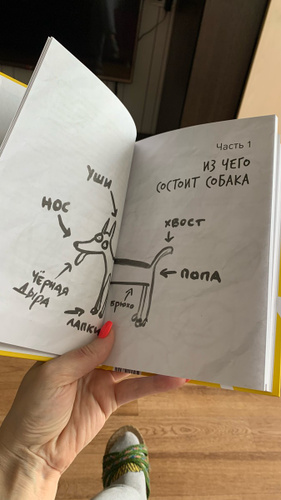 УШИ
НОС
ЧЁРНАЯ
ДЫРА
ЛАПКИ
Часть 1
ИЗ ЧЕГО
СОСТОИТ СОБАКА
ХВОСТ
ПОПА
БРЮХО